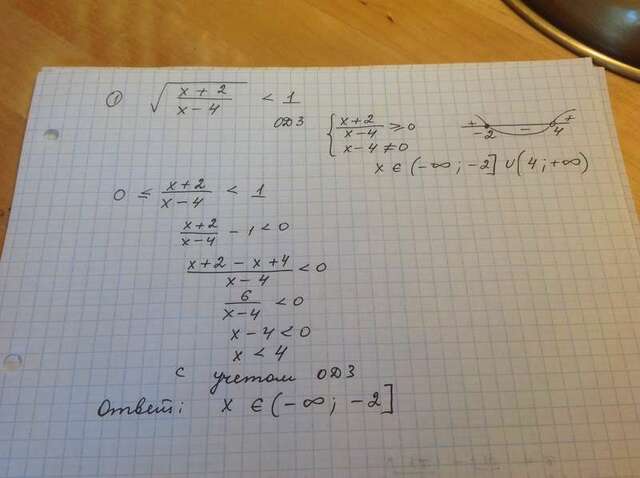 ① √((x + 2)/(x - 4)) < 1
ОДЗ { (x+2)/(x-4) ≥ 0
x - 4 ≠ 0
+ -2 - 4 +
x ∈ (-∞; -2] ∪ (4; +∞)
0 ≤ (x+2)/(x-4) < 1
(x+2)/(x-4) - 1 < 0
(x+2 - x+4)/(x-4) < 0
6/(x-4) < 0
x - 4 < 0
x < 4
с учетом ОДЗ
Ответ: x ∈ (-∞; -2]